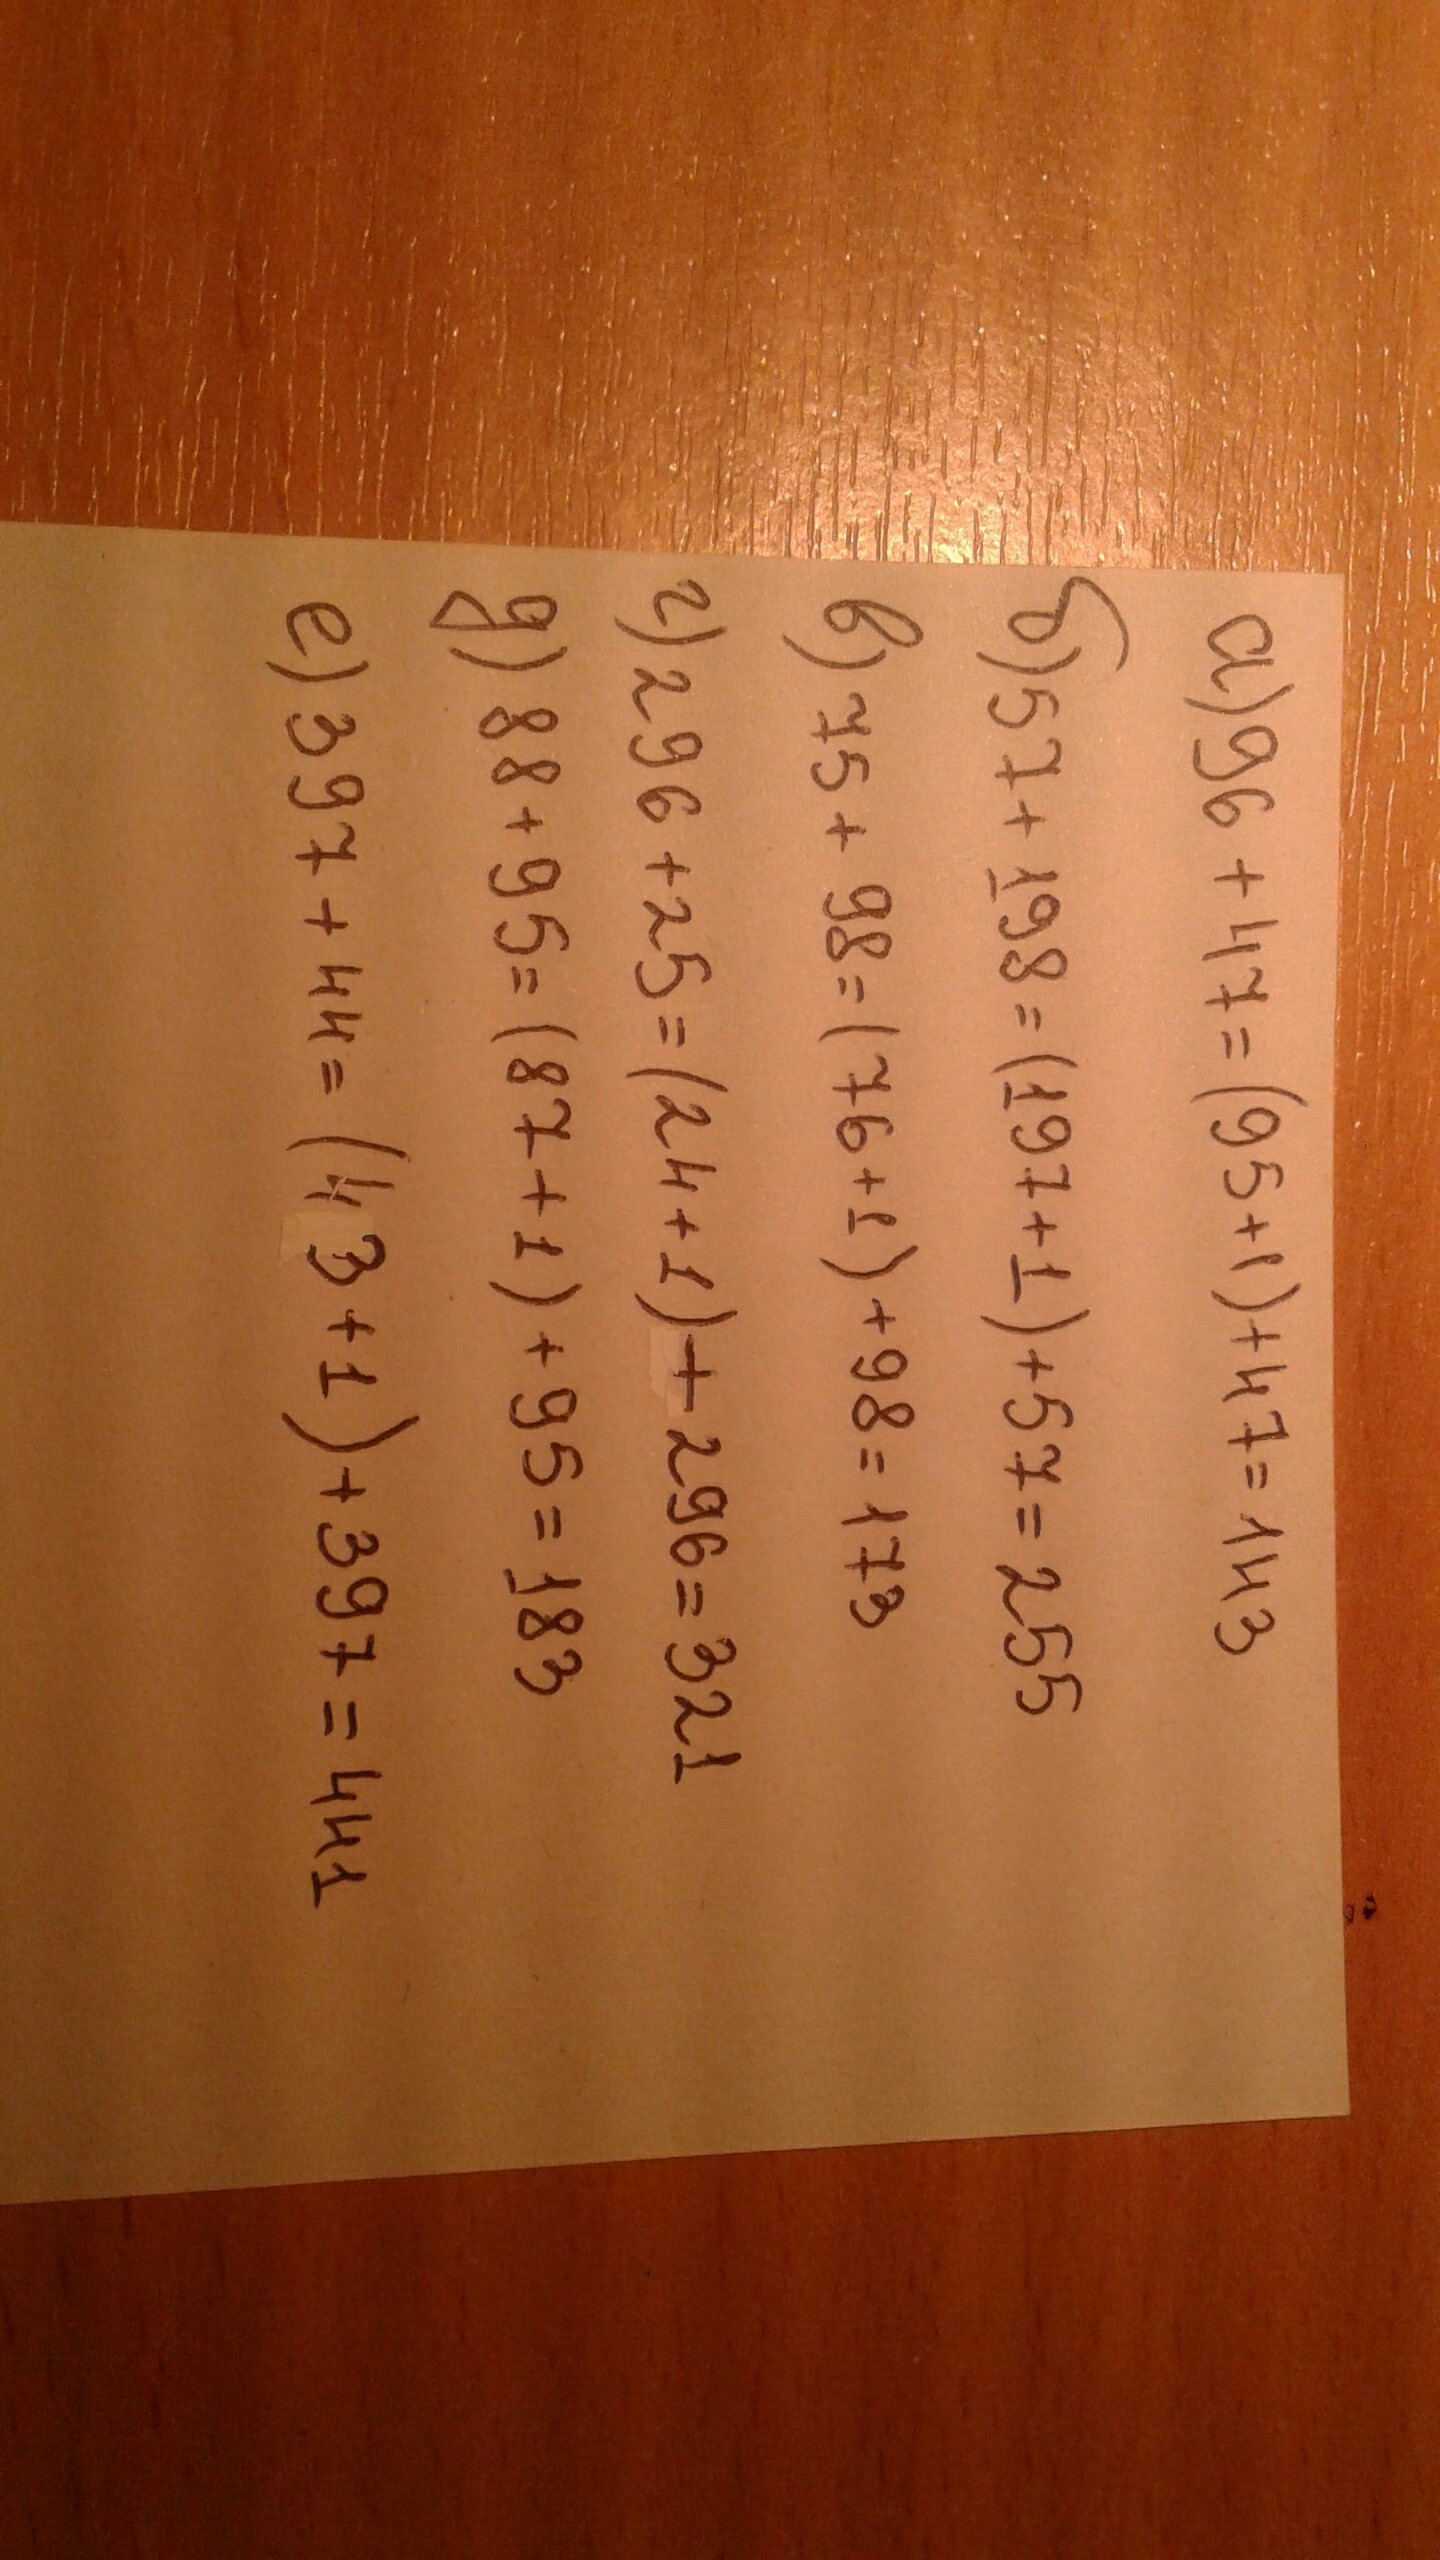 а) 96 + 47 = (95+1)+47 = 143
б) 57 + 198 = (197+1)+57 = 255
в) 75 + 98 = (76+1)+98 = 173
г) 296 + 25 = (24+1)+296 = 321
д) 88 + 95 = (87+1)+95 = 183
е) 397 + 44 = (43+1)+397 = 441